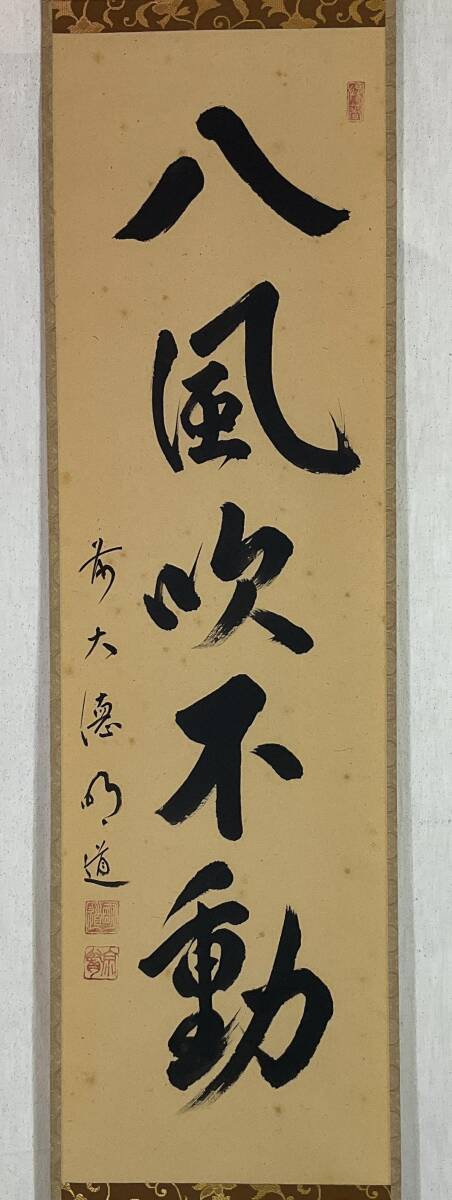 八風吹不動
前大德明道